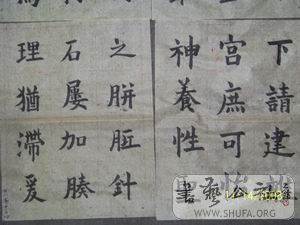 下請建
宮庶可
神養性
之胼胝針
石屢加腠
理猶滯爰
書藝公社
WWW.SHUFA.ORG